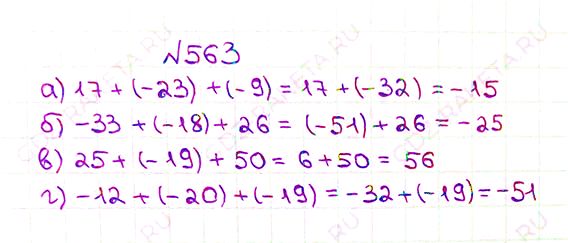 №563
а) 17 + (-23) + (-9) = 17 + (-32) = -15
б) -33 + (-18) + 26 = (-51) + 26 = -25
в) 25 + (-19) + 50 = 6 + 50 = 56
г) -12 + (-20) + (-19) = -32 + (-19) = -51